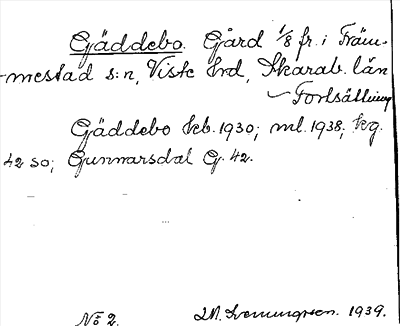 Gäddebo. Gård 1/8 fr. i Främ-
mestad s:n, Viste hrd, Skarab. län
Fortsättning
Gäddebo kb. 1930; ml. 1938; kg.
42 SO; Gunnarsdal G. 42.
No 2. 1939.